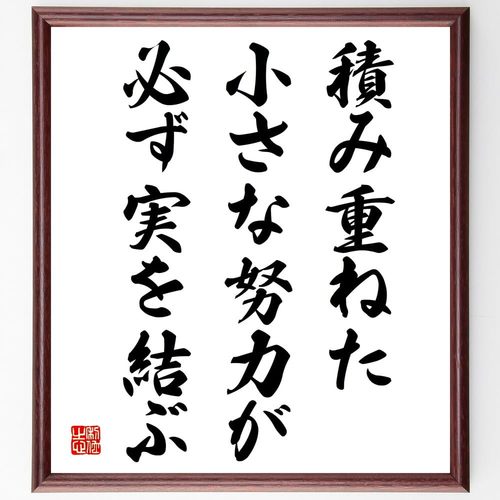 積み重ねた
小さな努力が
必ず実を結ぶ